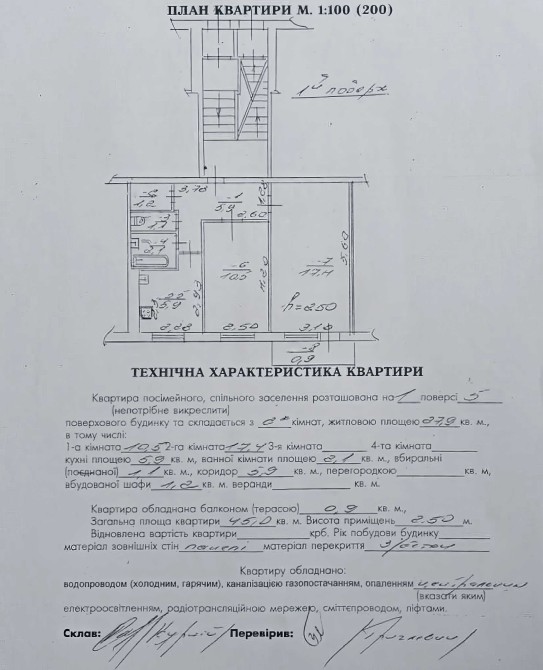 ПЛАН КВАРТИРИ М. 1:100 (200)
1й поверх
3,78
-1
5,9
2,60
1,2
1,1
2,1
5,9
2,93
-6
10,5
-7
17,4
5,60
h=2.50
2,50
3,18
0,9
ТЕХНІЧНА ХАРАКТЕРИСТИКА КВАРТИРИ
Квартира посімейного, спільного заселення розташована на 1 поверсі 5
(непотрібне викреслити)
поверхового будинку та складається з 2х кімнат, житловою площею 27,9 кв. м.,
в тому числі:
1-а кімната 10,5 2-га кімната 17,4 3-я кімната 4-та кімната
кухні площею 5,9 кв. м, ванної кімнати площею 2,1 кв. м., вбиральні
(поєднаної) 1,1 кв. м., коридор 5,9 кв. м., перегородкою кв. м,
вбудованої шафи 1,2 кв. м. веранди кв. м.
Квартира обладнана балконом (терасою) 0,9 кв. м.,
Загальна площа квартири 45,0 кв. м. Висота приміщень 2.50 м.
Відновлена вартість квартири крб. Рік побудови будинку
матеріал зовнішніх стін панелі матеріал перекриття з/бетон
Квартиру обладнано:
водопроводом (холодним, гарячим), каналізацією газопостачанням, опаленням
(вказати яким)
електроосвітленням, радіотрансляційною мережею, сміттєпроводом, ліфтами.
Склав: Перевірив: